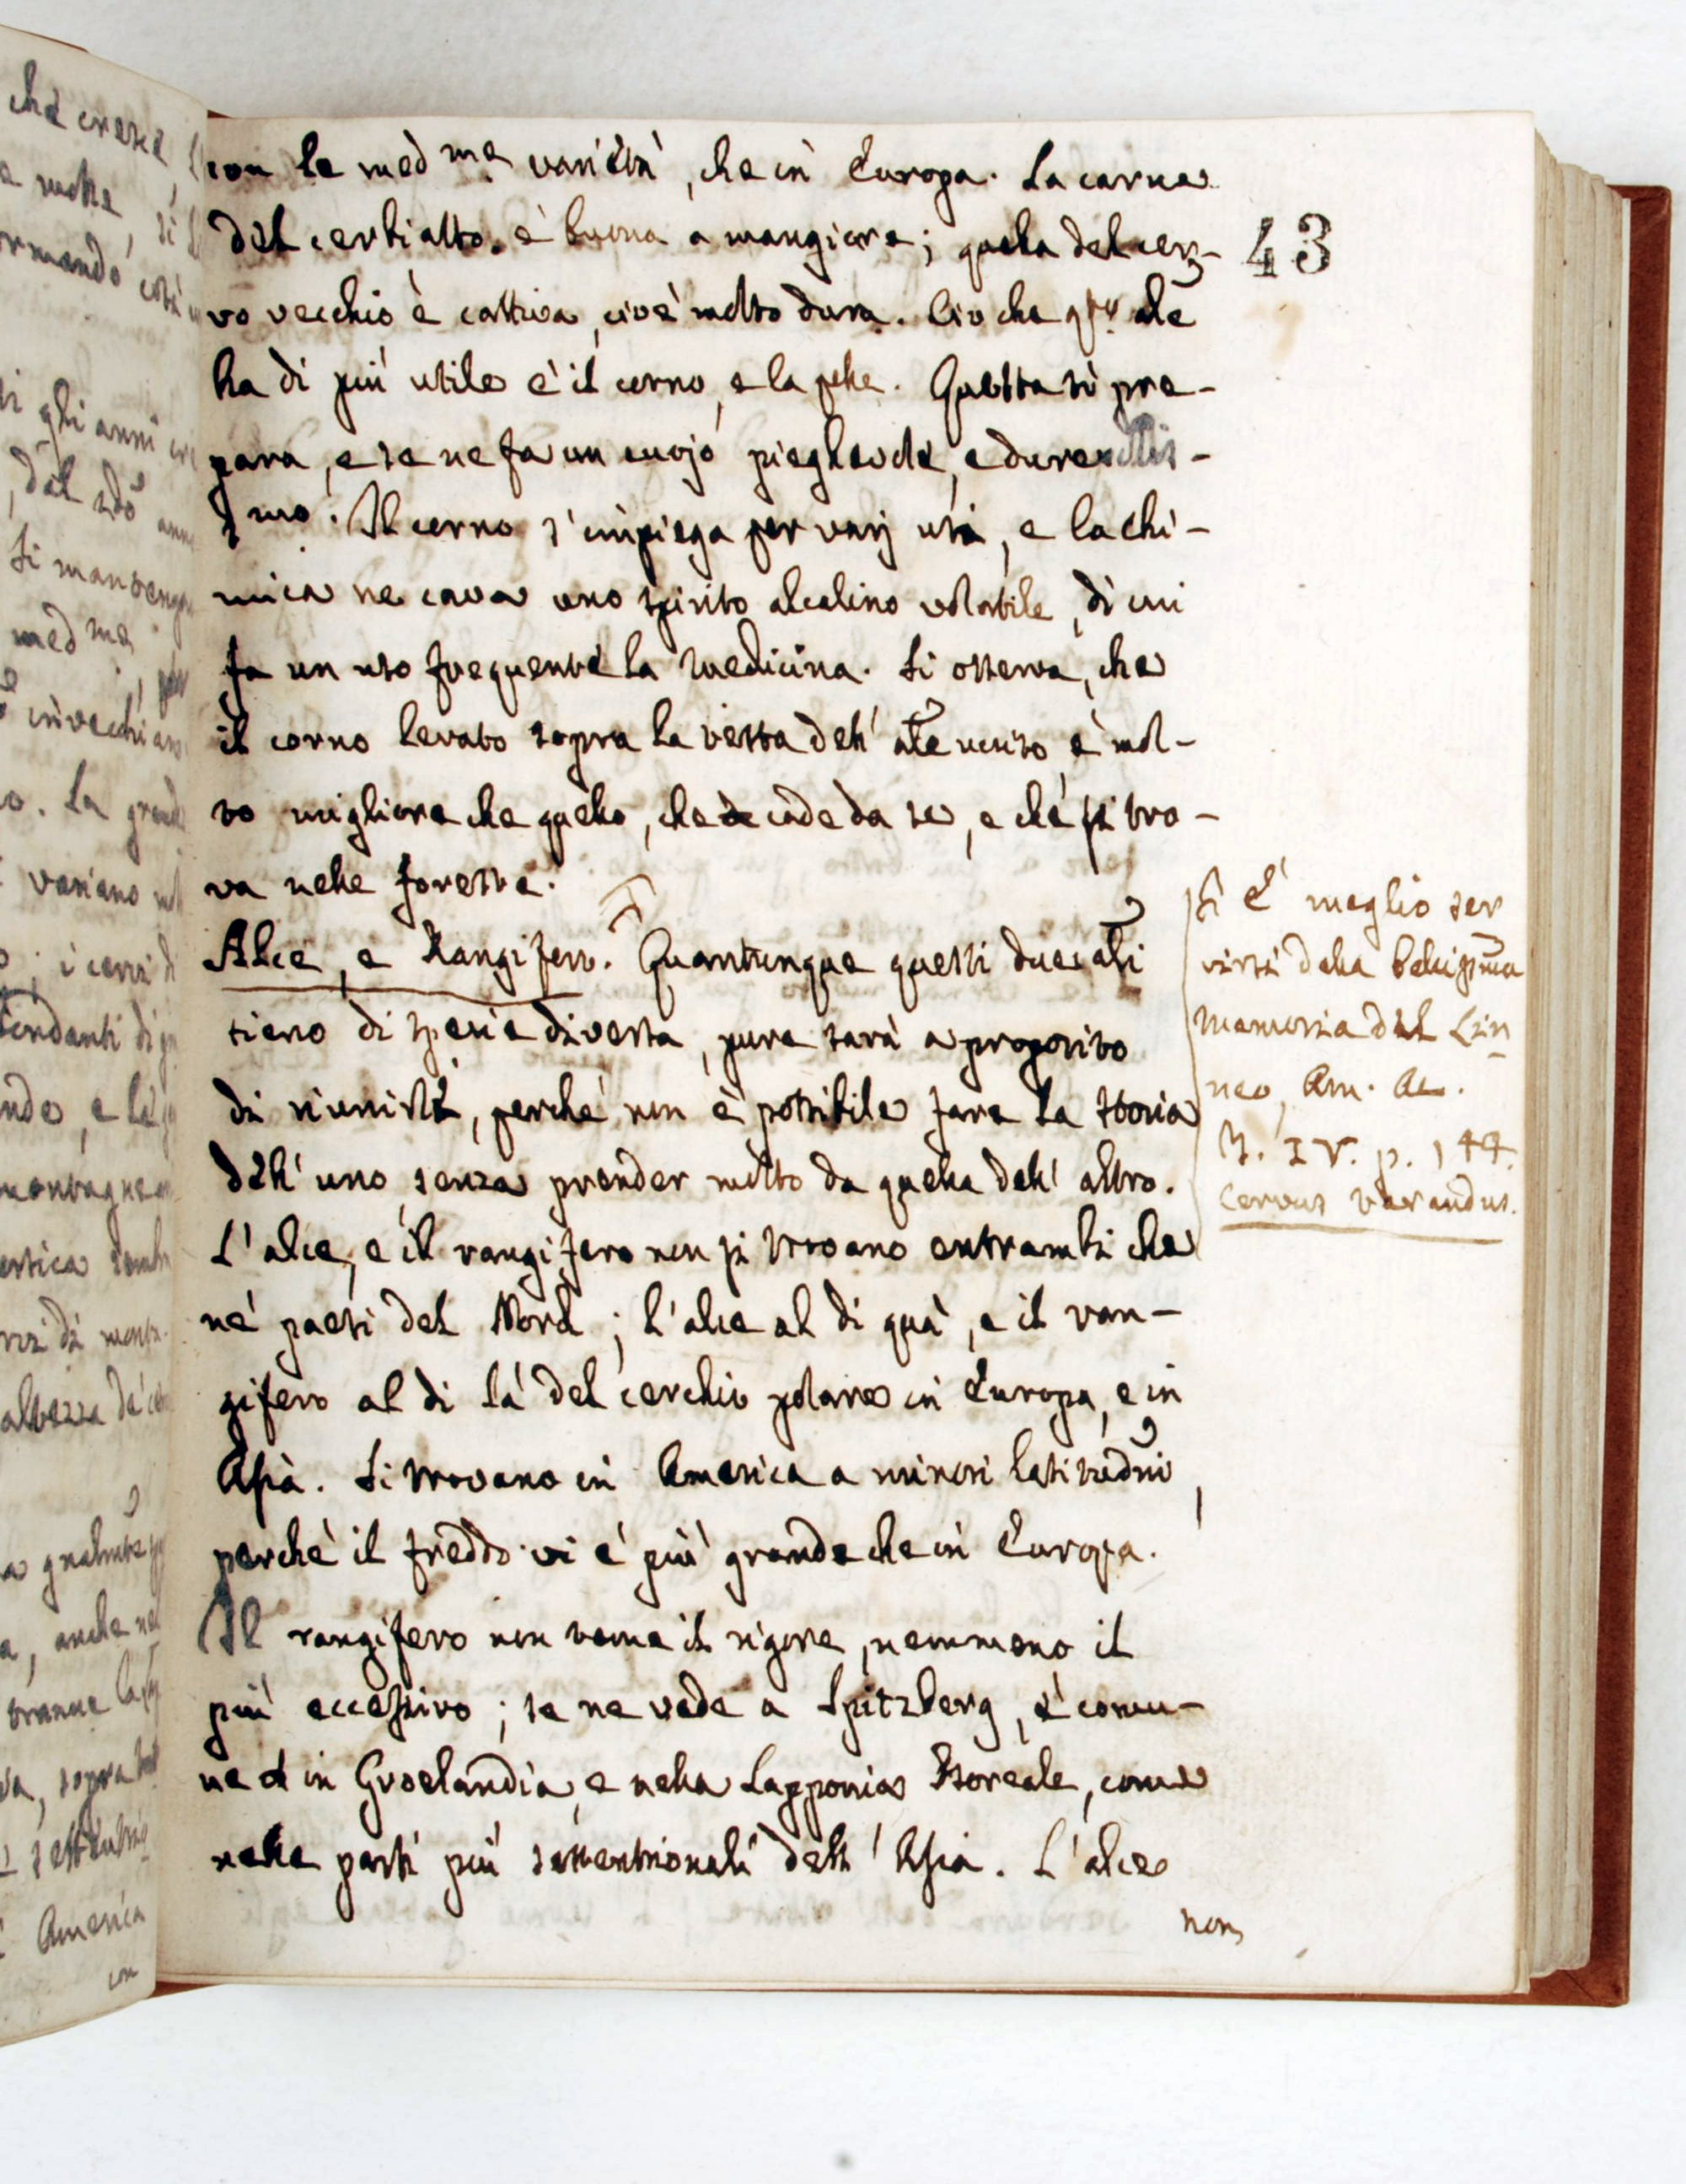 con le med.me varietà, che in Europa. La carne
del cerbiatto è buona a mangiare; quella del cer-
vo vecchio è cattiva, cioè molto dura. Ciò che q.sto ale
ha di più utile è il corno, e la pelle. Questa si pre-
para, e se ne fa un cuojo pieghevole, e durevolis-
s.mo. Il corno s'impiega per varj usi, e la chi-
mica ne cava uno spirito alcalino volatile, di cui
fa un uso frequente la medicina. Si osserva, che
il corno levato sopra la testa dell' ale ucciso è mol-
to migliore che quello, che cade da se, e che si tro-
va nelle foreste.
Alce, e Rangifero. Quantunque questi due ali
sieno di specie diversa, pure sarà a proposito
di riunirli, perchè non è possibile fare la storia
dell' uno, senza prender molto da quella dell' altro.
L'alce, e il rangifero non si trovano entrambi che
ne' paesi del Nord; l'alce al di quà, e il ran-
gifero al di là del cerchio polare in Europa, e in
Asia. Si trovano in America a minori latitudni,
perchè il freddo vi è più grande che in Europa.
Il rangifero non teme il rigore, nemmeno il
più eccessivo; se ne vede a Spitzberg, è comu-
ne in Groelandia, e nella Lapponia Boreale, come
nelle parti più settentrionali dell' Asia. L'alce
non
43
È meglio ser
virsi della bellissma
memoria del Lin
neo, Am. Ac.
T. IV. p. 144.
Cervus tarandus.
che cresce
e molte, si
ormando così
gli anni
, dal sdo ann
si manteng
med.me, per
invecchiano
o. La grand
variano
; i cervi d
endenti di
nde, e le
montagne
estica
di mont
altezza de' ce
a gralmte
a, anche ne
tranne la
va, sopra
settentrio
America
con